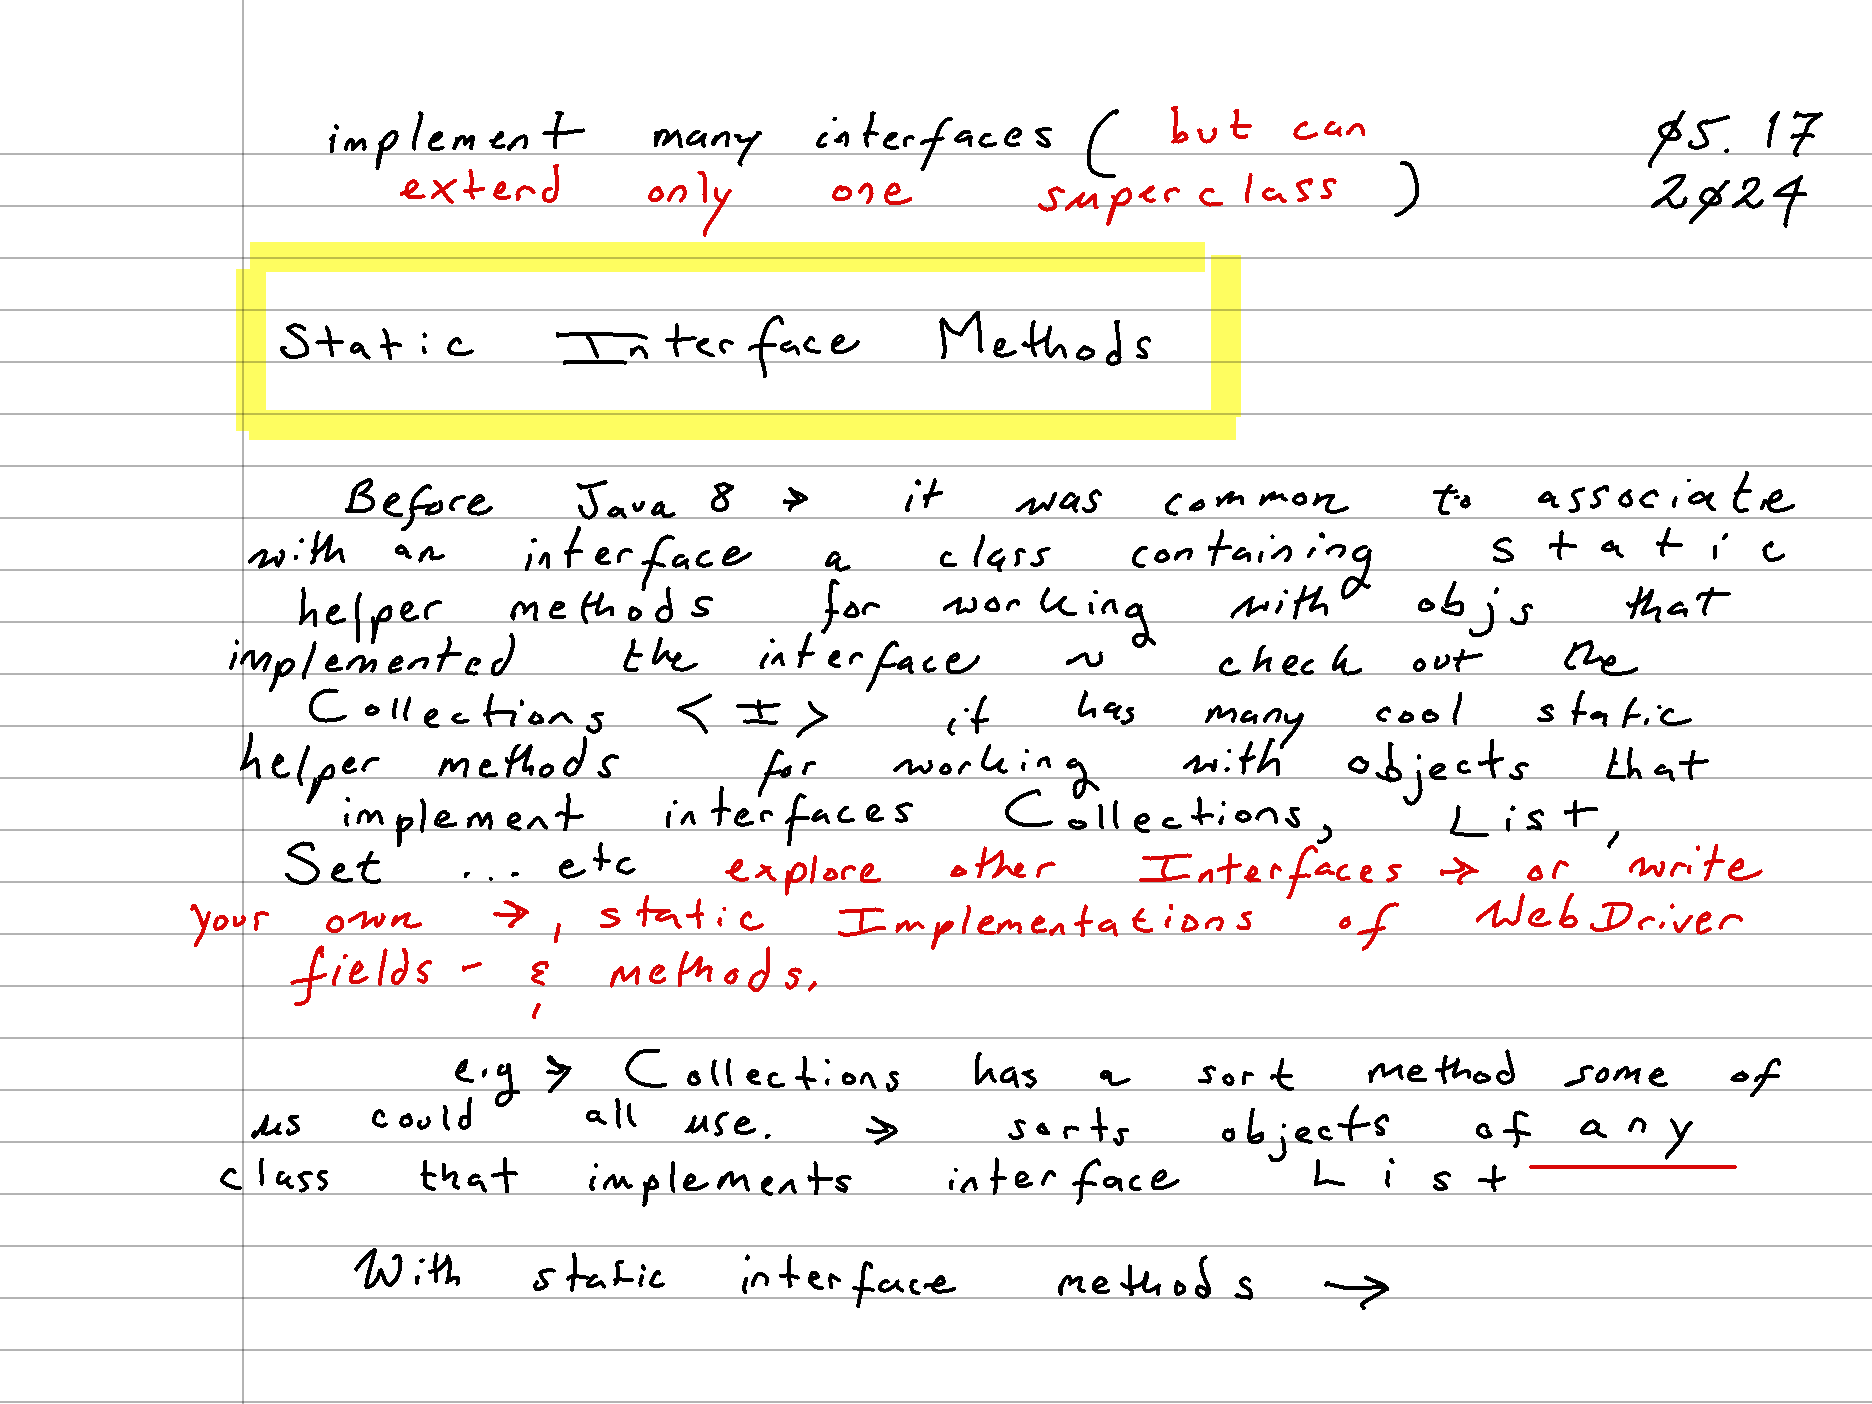 implement many interfaces ( but can
extend only one superclass )
Ø5. 17
2Ø24
Static Interface Methods
Before Java 8 → it was common to associate
with an interface a class containing static
helper methods for working with objs that
implemented the interface ~ check out the
Collections <I> it has many cool static
helper methods for working with objects that
implement interfaces Collections, List,
Set ... etc explore other Interfaces → or write
your own →, static Implementations of WebDriver
fields - & methods.
e.g → Collections has a sort method some of
us could all use. → sorts objects of any
class that implements interface List
With static interface methods →